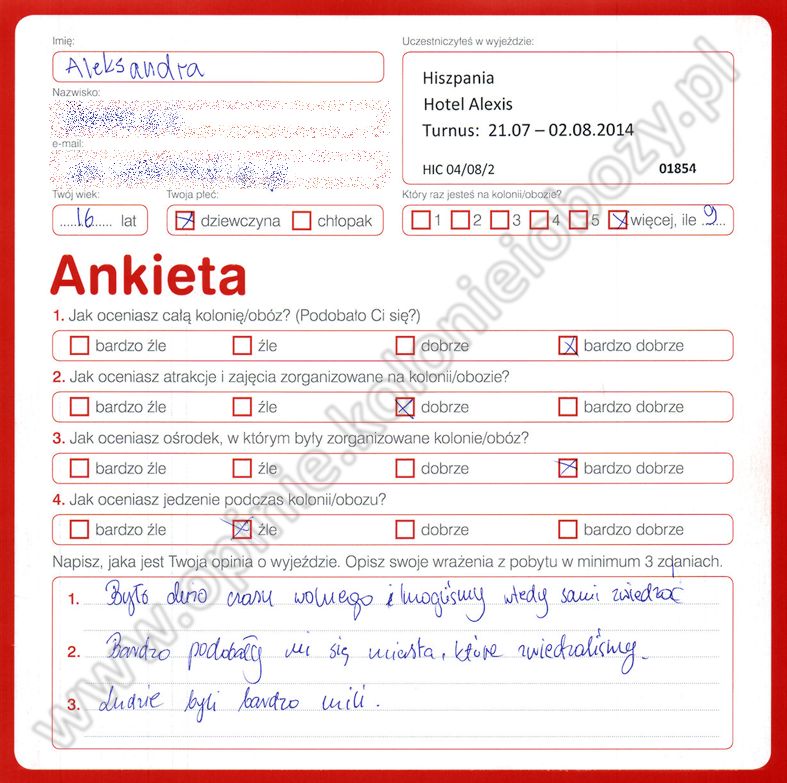 Imię:
Aleksandra
Nazwisko:
e-mail:
Twój wiek:
16 lat
Twoja płeć:
dziewczyna chłopak
Uczestniczyłeś w wyjeździe:
Hiszpania
Hotel Alexis
Turnus: 21.07 – 02.08.2014
HIC 04/08/2 01854
Który raz jesteś na kolonii/obozie?
1 2 3 4 5 więcej, ile 9
Ankieta
1. Jak oceniasz całą kolonię/obóz? (Podobało Ci się?)
bardzo źle źle dobrze bardzo dobrze
2. Jak oceniasz atrakcje i zajęcia zorganizowane na kolonii/obozie?
bardzo źle źle dobrze bardzo dobrze
3. Jak oceniasz ośrodek, w którym były zorganizowane kolonie/obóz?
bardzo źle źle dobrze bardzo dobrze
4. Jak oceniasz jedzenie podczas kolonii/obozu?
bardzo źle źle dobrze bardzo dobrze
Napisz, jaka jest Twoja opinia o wyjeździe. Opisz swoje wrażenia z pobytu w minimum 3 zdaniach.
1. Było dużo czasu wolnego i mogliśmy wtedy sami zwiedzać
2. Bardzo podobały mi się miasta, które zwiedzaliśmy.
3. Ludzie byli bardzo mili.
www.opinie.kolonieiobozy.pl